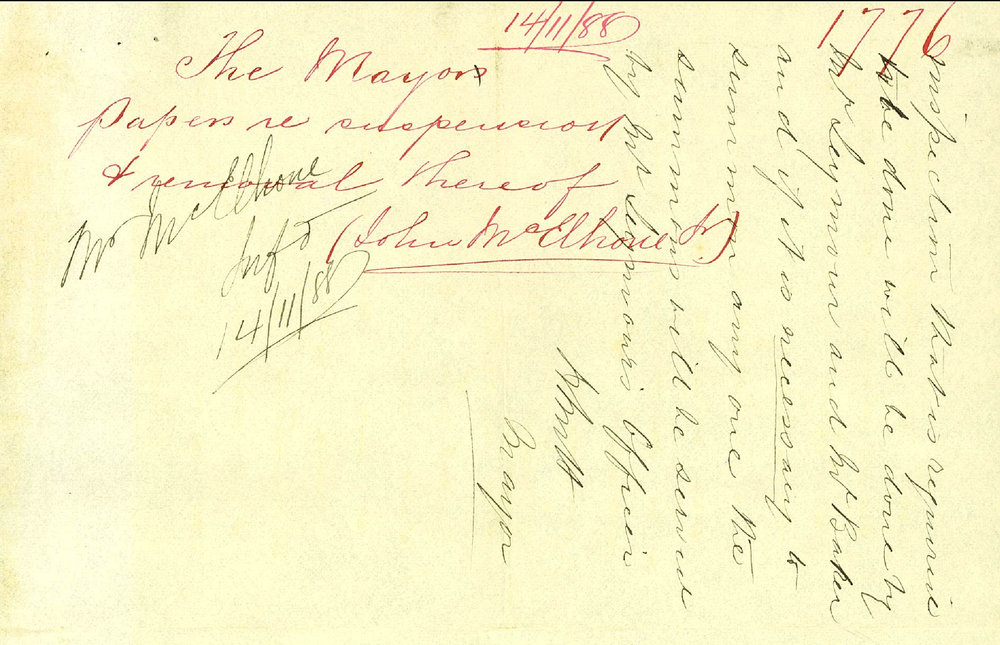 14/11/88
1776
The Mayor
papers re suspension
& removal thereof
(John McElhone Jr)
Mr McElhone
Infd
14/11/88
inspection that is requirie
to be done will be done by
Mr Seymour and Mr Baker
and if it is necessary to
summon any one the
summons will be served
by Mr Seymours Officer
Mayor